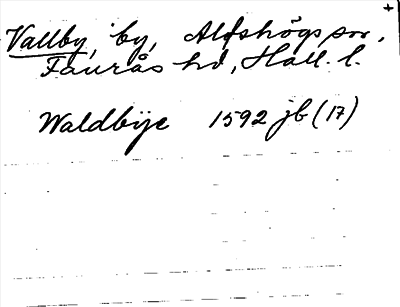 Vallby, by, Alfshögs sn,
Faurås hd, Hall. l.
Waldbÿe 1592 jb (17)